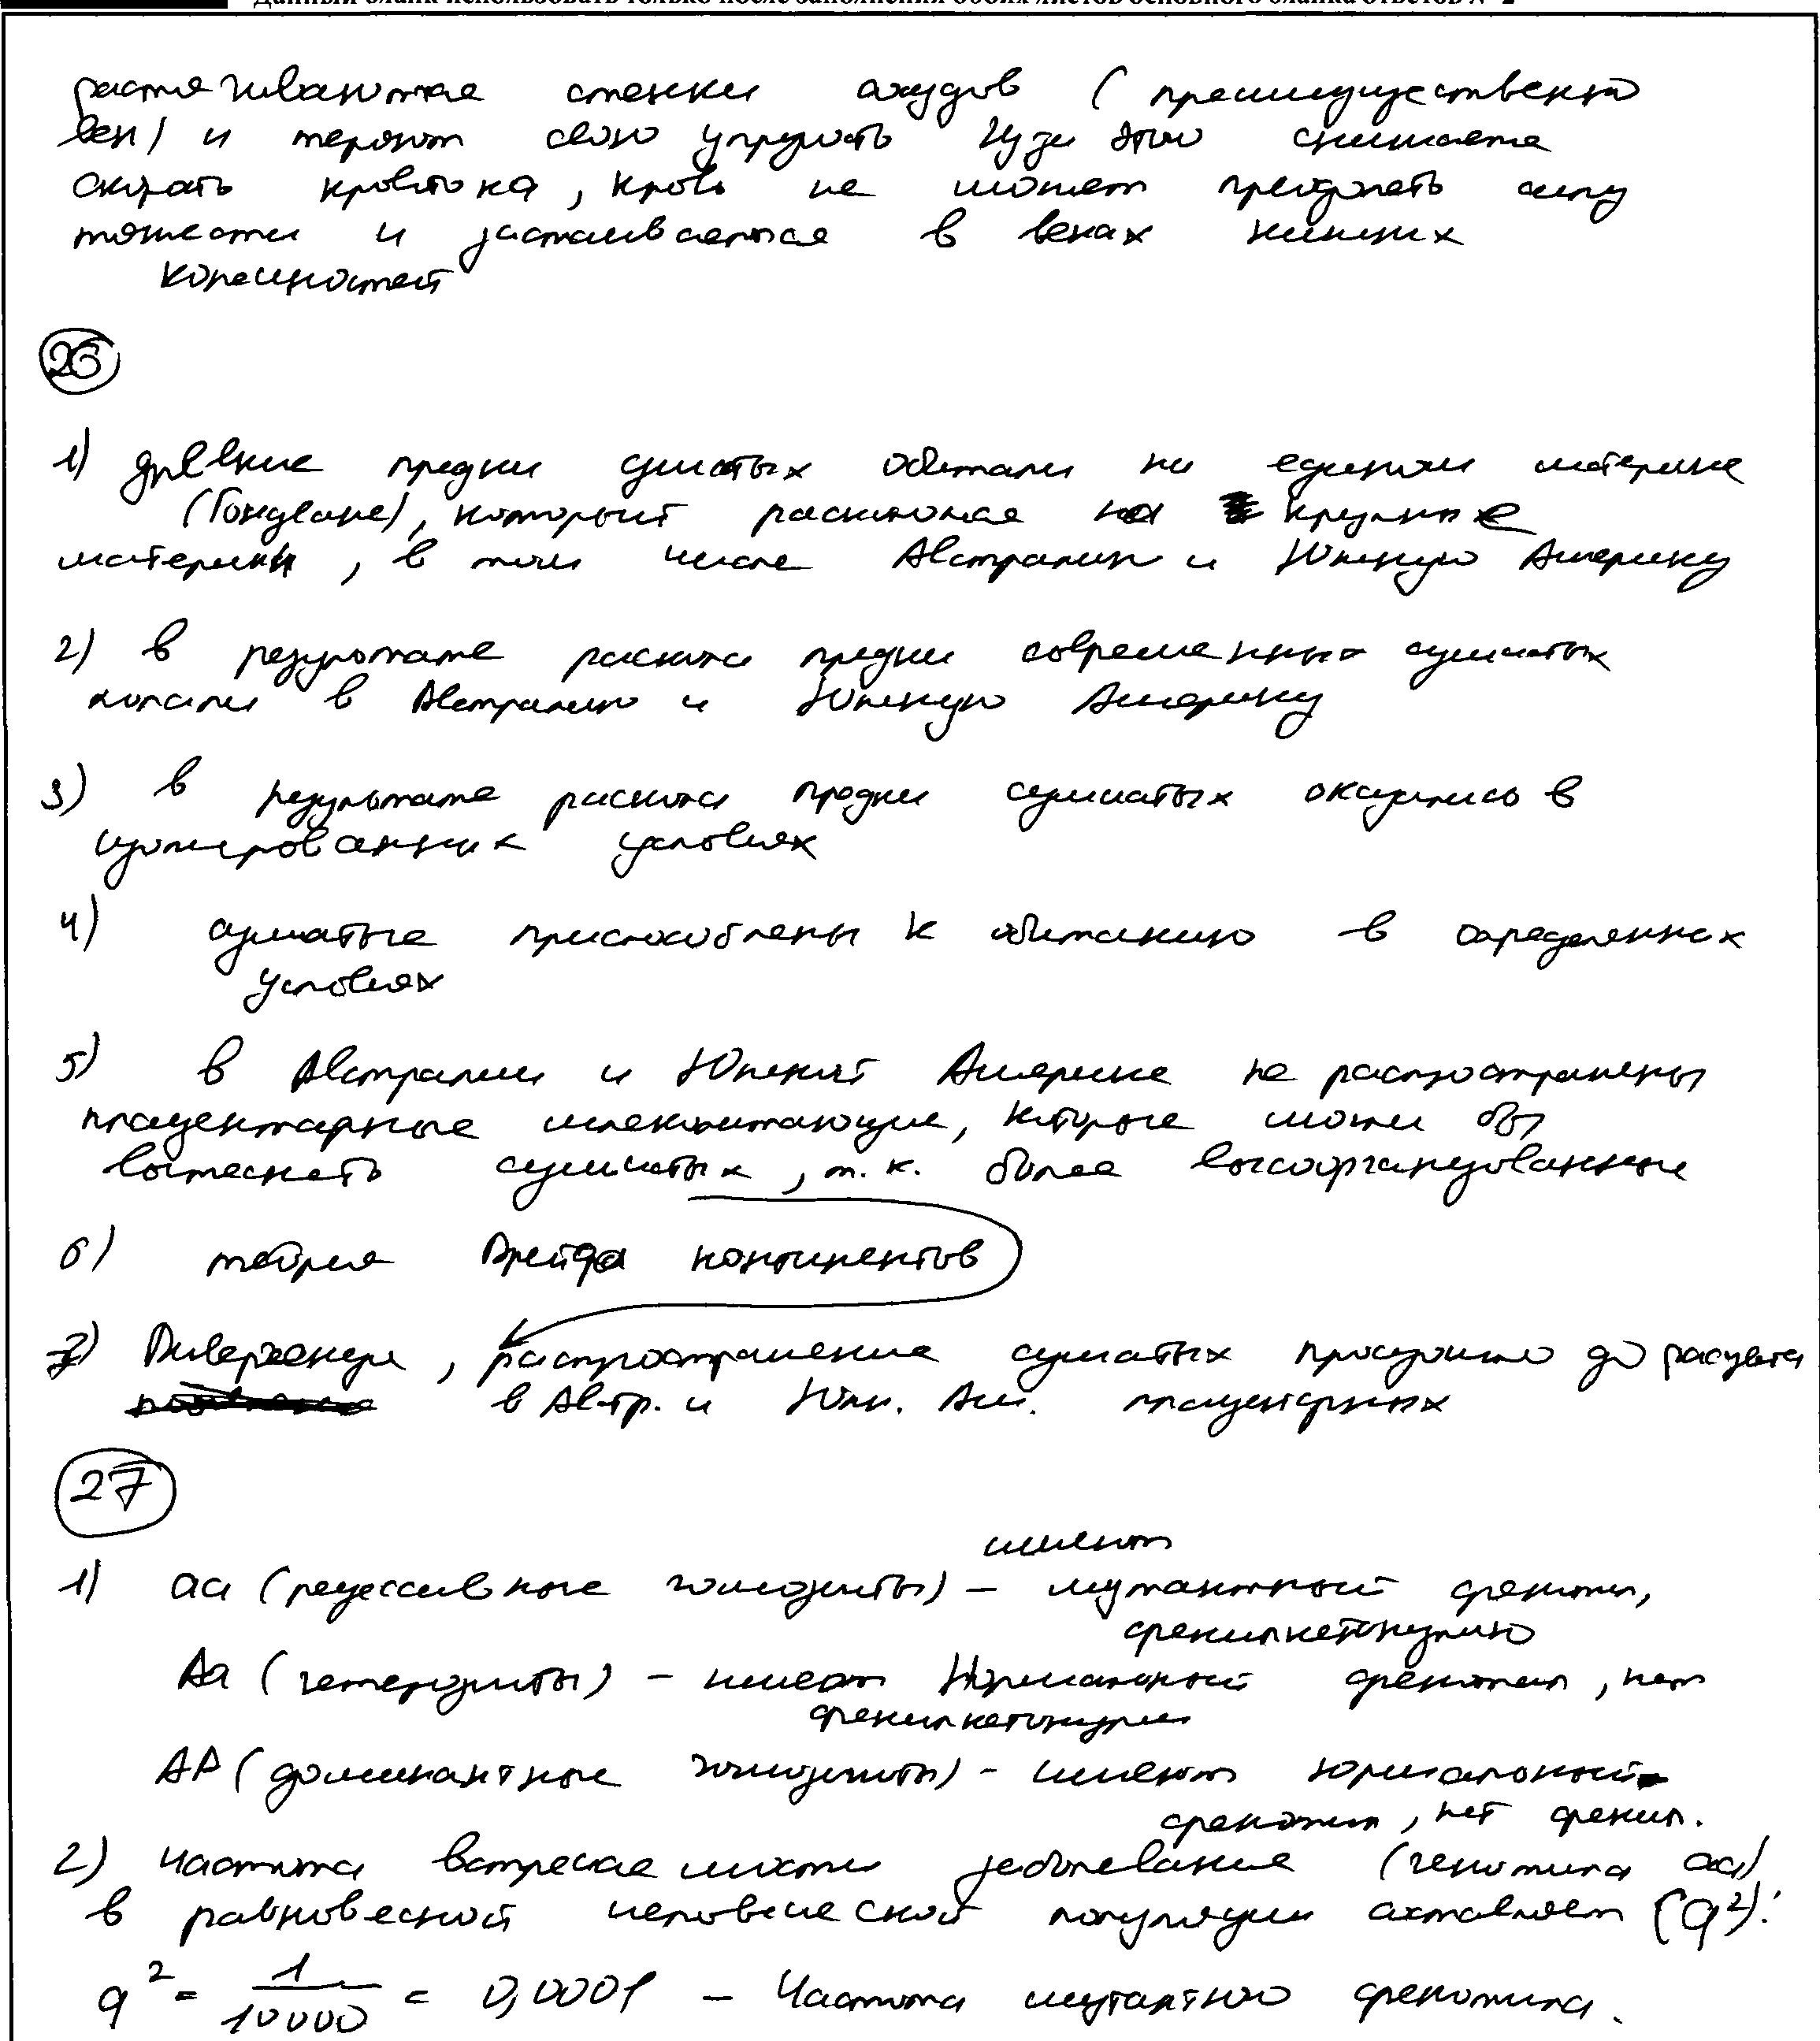 Данный бланк использовать только после заполнения обоих листов основного бланка ответов № 2
растягиваются стенки сосудов (преимущественно
вен) и теряют свою упругость Из-за этого снижается
скорость кровотока, кровь не может преодолеть силу
тяжести и застаивается в венах нижних
конечностей
26
1) древние предки сумчатых обитали на едином материке
(Гондване), который раскололся на крупные
материки, в том числе Австралию и Южную Америку
2) в результате раскола предки современных сумчатых
попали в Австралию и Южную Америку
3) в результате раскола предки сумчатых оказались в
изолированных условиях
4) сумчатые приспособлены к обитанию в определенных
условиях
5) в Австралии и Южной Америке не распространены
плацентарные млекопитающие, которые могли бы
вытеснить сумчатых, т.к. более высокоорганизованные
6) теория Дрейфа континентов
7) Дивергенция, распространение сумчатых произошло до расцвета
в Австр. и Южн. Ам. плацентарных
27
имеют
1) aa (рецессивные гомозиготы) – мутантный фенотип,
фенилкетонурию
Aa (гетерозиготы) – имеют Нормальный фенотип, нет
фенилкетонурии
AA (доминантные гомозиготы) – имеют нормальный
фенотип, нет фенил.
2) частота встречаемости заболевания (генотипа aa)
в равновесной человеческой популяции составляет (q²):
q² = 1/10000 = 0,0001 – Частота мутантного фенотипа.